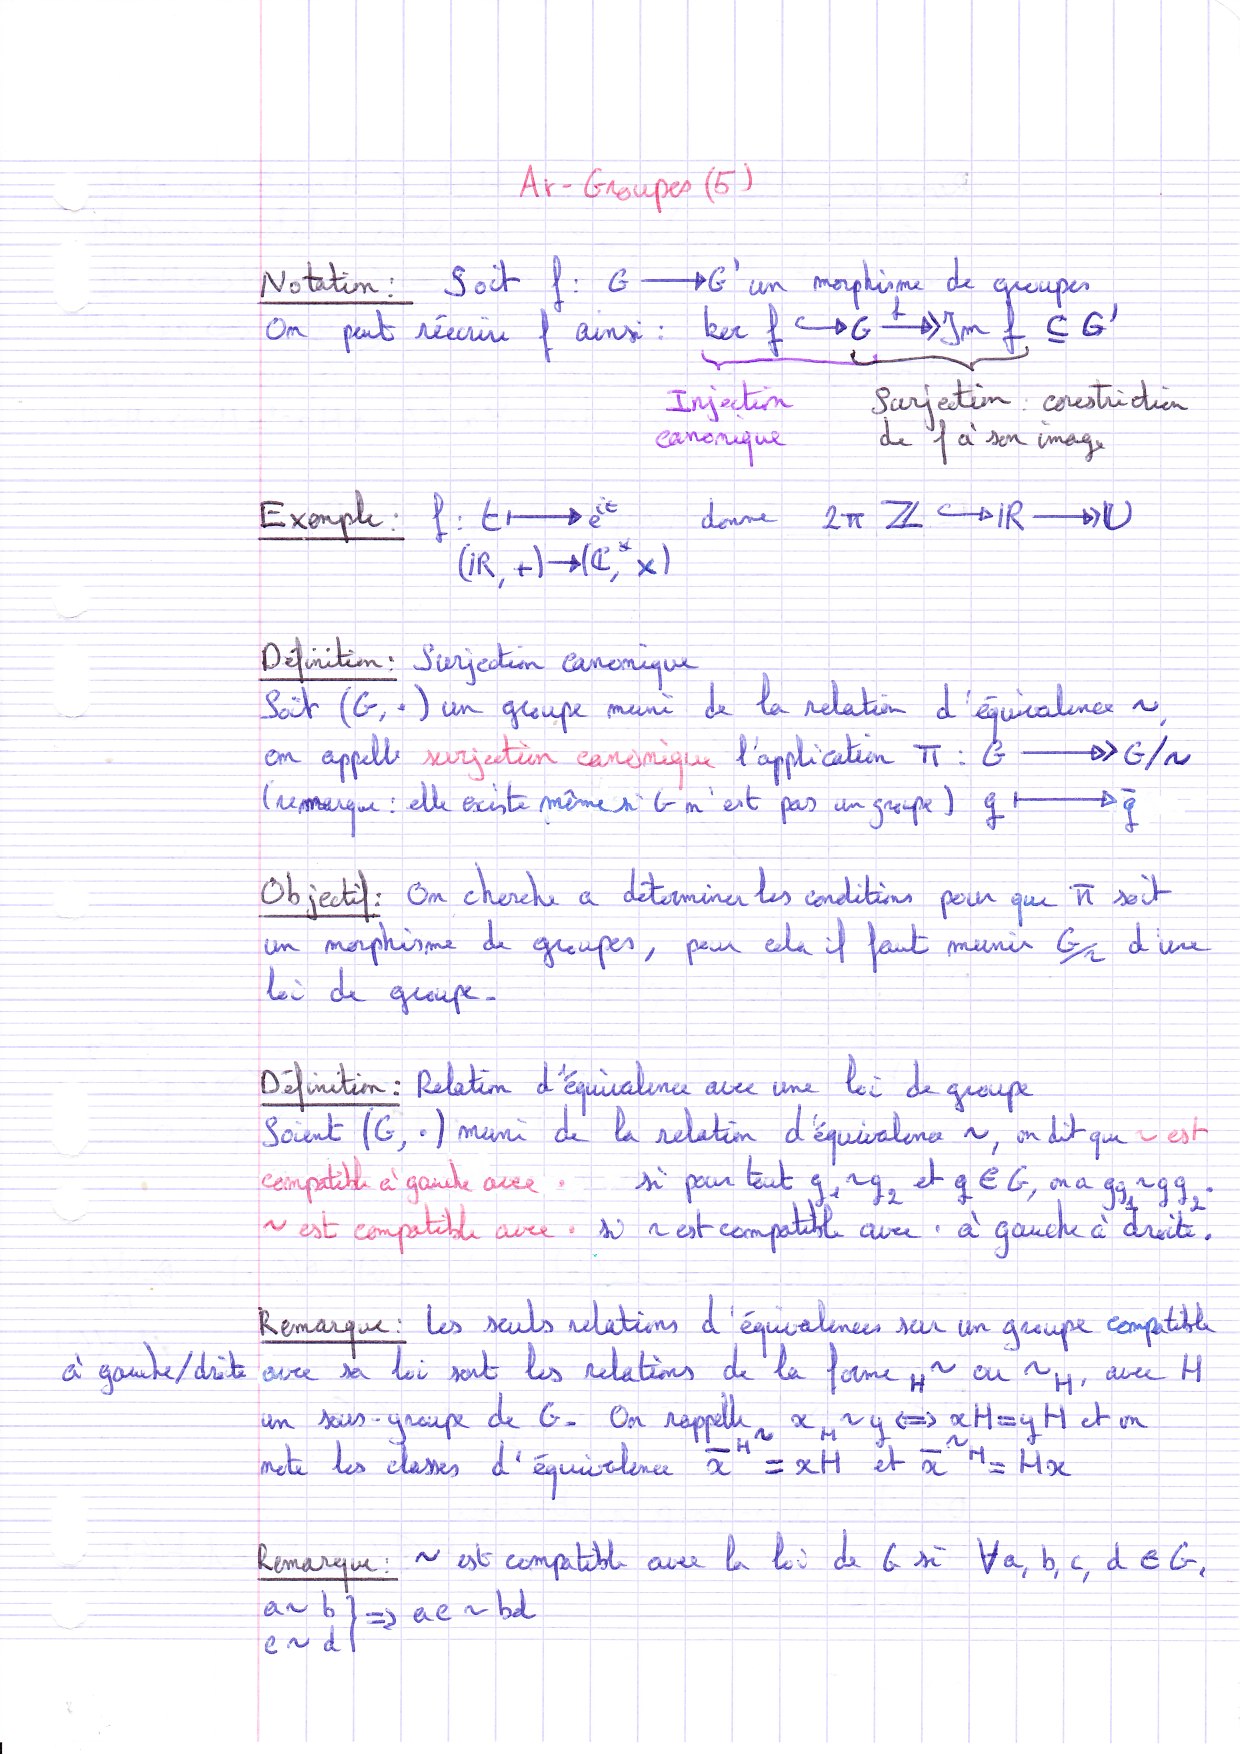 Ar-Groupes (5)
Notation : Soit f : G ⟶ G' un morphisme de groupes
On peut réécrire f ainsi : ker f ↪ G ↠ Im f ⊆ G'
f
Injection canonique
Surjection : corestriction de f à son image
Exemple : f : t ⟼ e^{it} donne 2π ℤ ↪ ℝ ↠ 𝕌
(ℝ, +) → (ℂ*, ×)
Définition : Surjection canonique
Soit (G, ·) un groupe muni de la relation d'équivalence ~,
on appelle surjection canonique l'application π : G ↠ G/~
(remarque : elle existe même si G n'est pas un groupe) g ⟼ g̅
Objectif : On cherche a déterminer les conditions pour que π soit
un morphisme de groupes, pour cela il faut munir G/~ d'une
loi de groupe.
Définition : Relation d'équivalence avec une loi de groupe
Soient (G, ·) muni de la relation d'équivalence ~, on dit que ~ est
compatible à gauche avec · si pour tout g₁ ~ g₂ et g ∈ G, on a gg₁ ~ gg₂.
~ est compatible avec · si ~ est compatible avec · à gauche à droite.
Remarque : Les seuls relations d'équivalences sur un groupe compatible
à gauche/droite avec sa loi sont les relations de la forme _H~ ou ~_H, avec H
un sous-groupe de G. On rappelle x _H~ y ⟺ xH = yH et on
note les classes d'équivalence x̅^{_H~} = xH et x̅^{~_H} = Hx
Remarque : ~ est compatible avec la loi de G si ∀a, b, c, d ∈ G,
a ~ b
c ~ d } ⟹ ac ~ bd